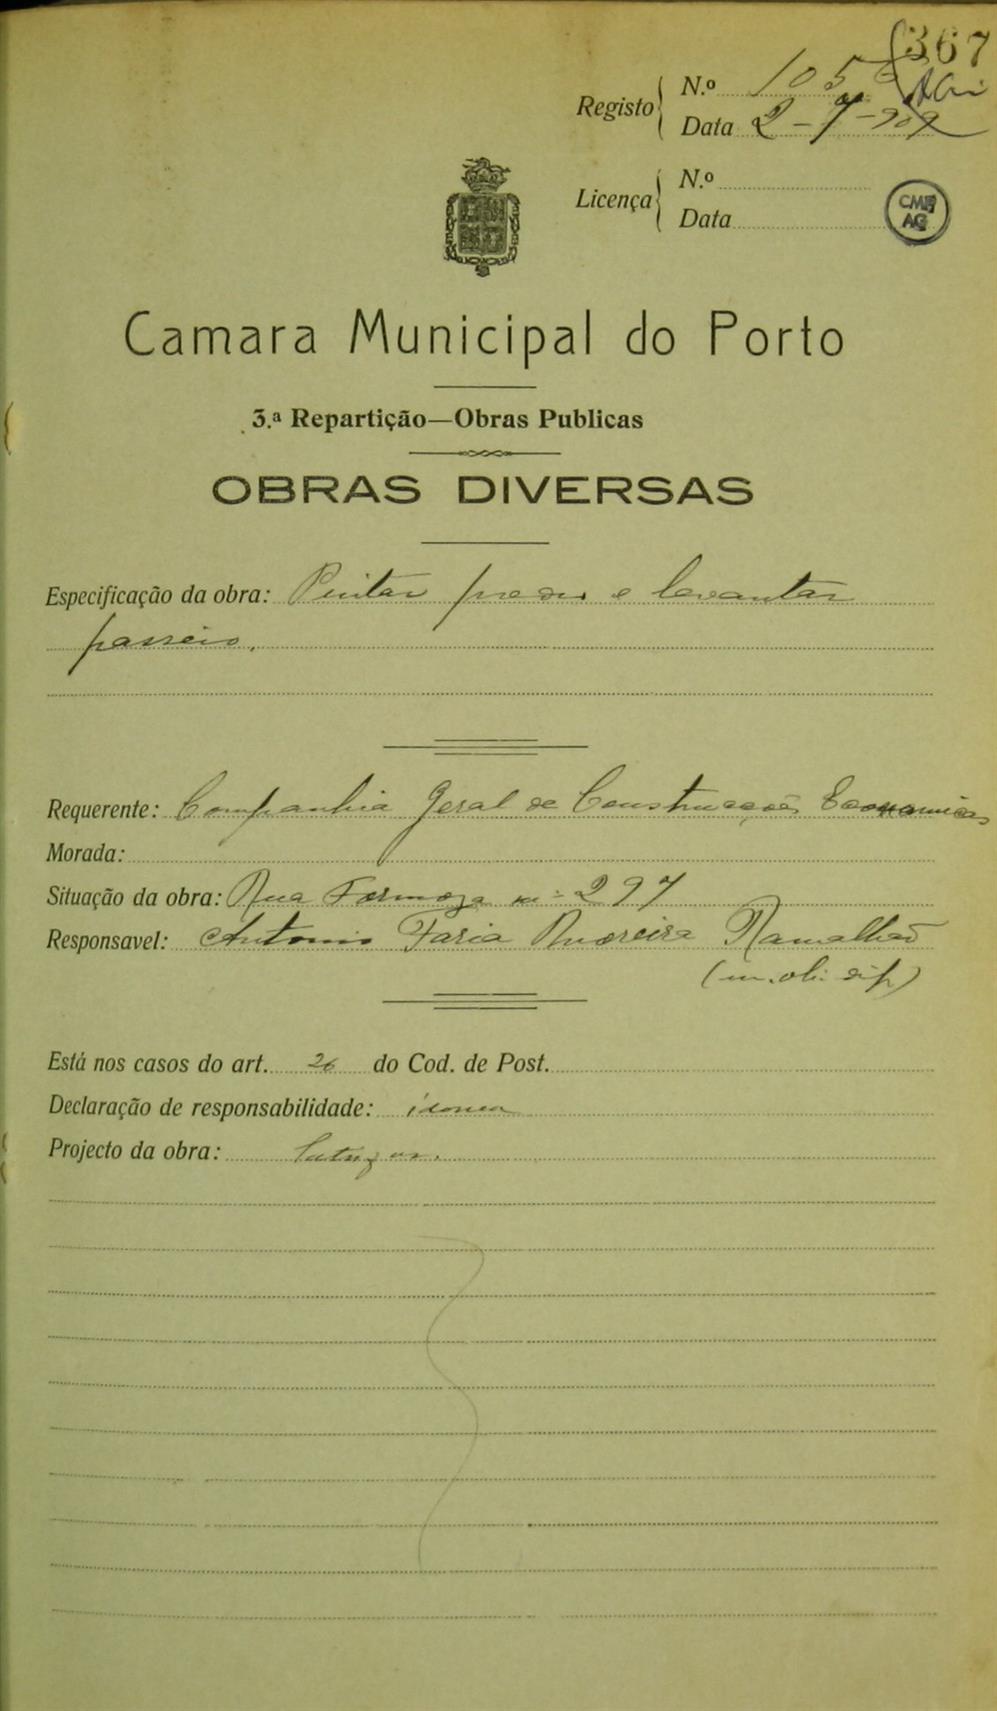 367
Registo
N.º 105
Data 2-7-909
Licença
N.º
Data
CMP
AG
Camara Municipal do Porto
3.ª Repartição—Obras Publicas
OBRAS DIVERSAS
Especificação da obra: Pintar predio e levantar
passeio.
Requerente: Companhia Geral de Construcções Economicas
Morada:
Situação da obra: Rua Formoza nº 297
Responsavel: Antonio Faria Moreira Ramalhão
Está nos casos do art. 26 do Cod. de Post.
Declaração de responsabilidade:
Projecto da obra: